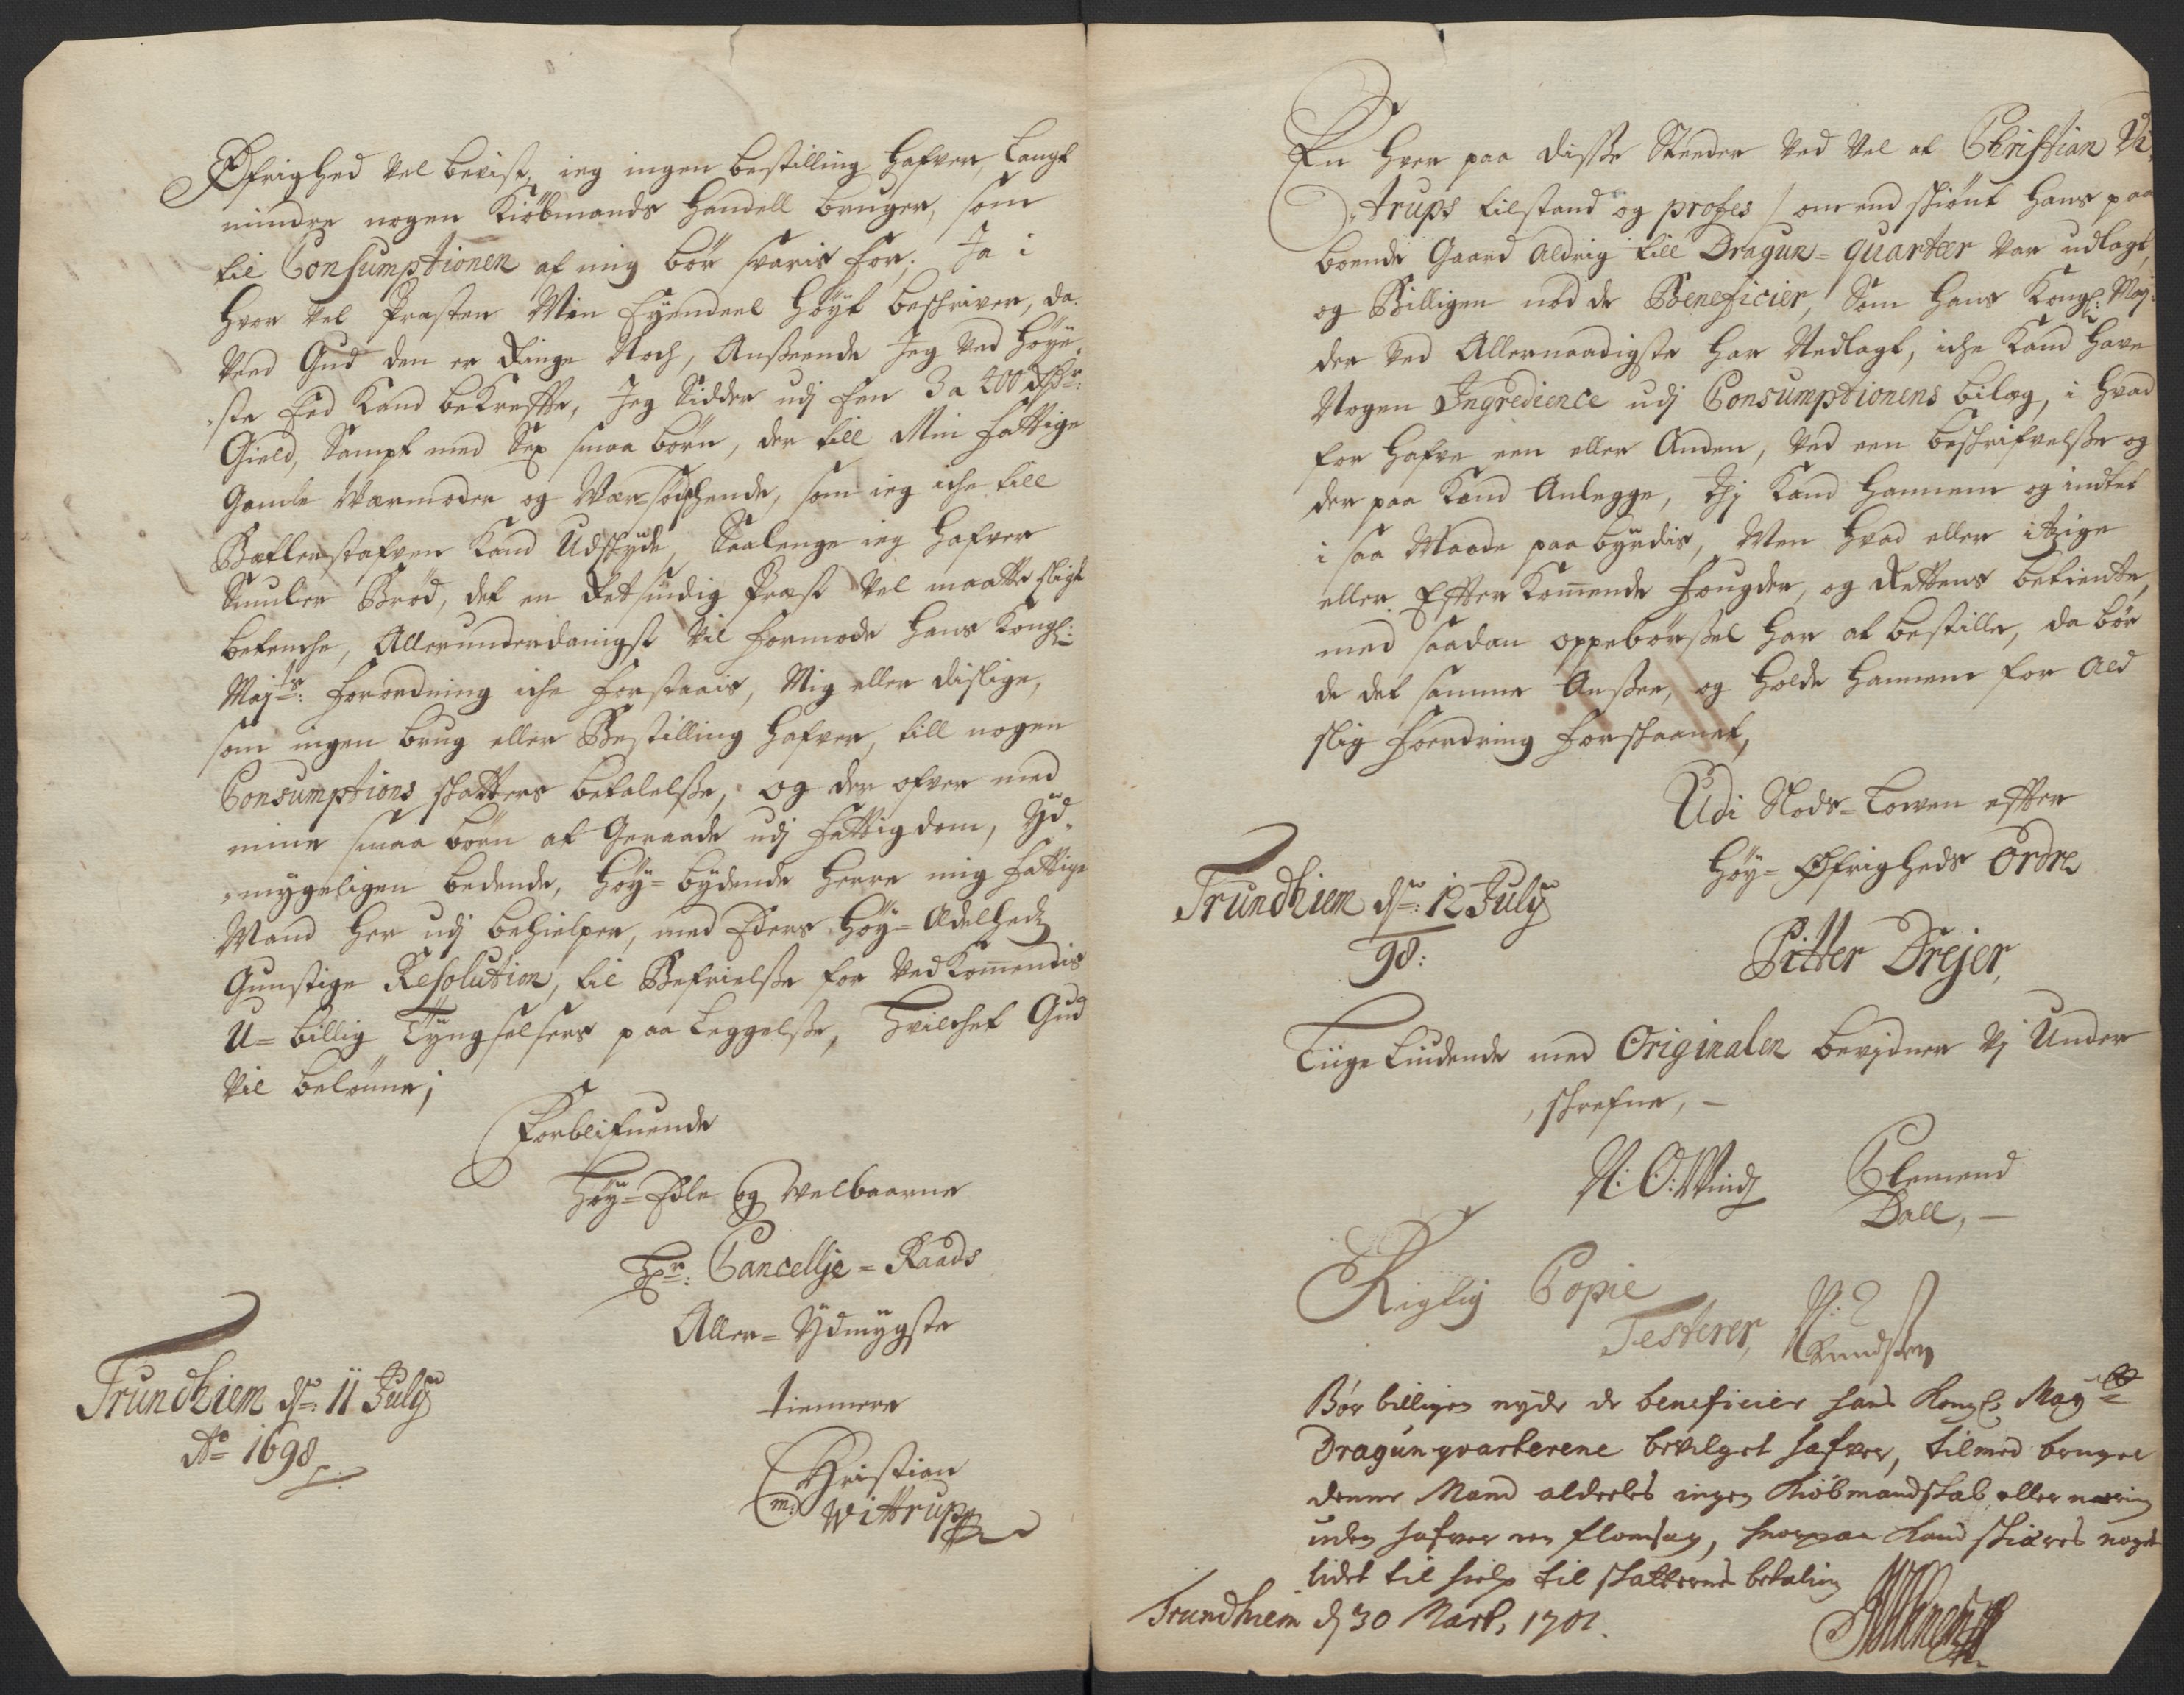 Øfrighed vel bevist, ieg ingen bestilling hafver, langt
mindre nogen Kiöbmands Handell bruger, som
til Consumptionen af mig bör svaris for; Ja i
hvor vel Præsten Min Eyendeel höyt beskriver, da
veed Gud den er Ringe Noch, Anßeende Jeg ved höye¬
ste Eed Kand bekreffte, Jeg Sidder udj Een 3 a 400 Rdr:
Gield, Sampt med Sex smaa börn, der till Min fattige
Gamle Værmoder og Vær-södschende, som ieg iche till
Betlerstafven Kand Udskyde, Saalenge ieg hafver
Smuler Bröd, det en Retsindig Præst vel maatte sligt
betenche, Allerunderdanigst vil formode Hans Kongl:
Majts: forordning iche forstaais, Mig eller dislige,
som ingen brug eller Bestilling hafver, till nogen
Consumptions skatters betalelße, og der ofver med
mine smaa börn at Geraade udj fattigdom, Yd¬
mygeligen bedende, Höy-bydende Herre mig fattige
Mand her udj behielper, med Eders Höy-Ædelheds
Gunstige Resolution, til Befrielße for Vedkommendis
U-billig Tyngselsers paa Leggelße, Hvilchet Gud
vil belönne;
Forblifuende
Höy-Edle og Velbaarne
Hr: Cancellje-Raads
Aller-Ydmygste
tiennere
Christian
Wittrup
m:
Trundhiem dn: 11 July
Ao 1698
En hver paa disße Steeder ved vel at Christian Vi¬
trups tilstand og profes / om end skiönt hans paa
boende Gaard aldrig till Dragun-quarteer var udlagt,
og Billigen nöd de Beneficier, Som Hans Kongl: May:
der ved Allernaadigste har Nedlagt, iche Kand have
Nogen Ingredience udj Consumptionens bilag, i hvad
for hafve een eller Anden, ved een beskrifvelße og
der paa Kand Anlegge, Thj Kand Hannem og indtet
i saa Maade paabyrdis, Men hvad eller itzige
eller Effterkommende fougder, og Rettens betiente,
med saadan oppebörßel har at bestille, da bör
de det samme Anßee, og holde Hannem for ald
slig fordring forskaanet,
Udi Stods-Lowen effter
Höy-Øfrigheds Ordre
Trundhiem dn: 12 July
98:
Pitter Drejer,
Liige Liudende med Originalen bevidner Vj Under
skrefne, –
N: O: Wind
Clemend
Dall, –
Rigtig Copie
Testerer,
N:
Knudsen
Bör billigen nyde de beneficier hans Kongl: Maytt
Dragunqvarterene bevilget hafver, tilmed bruger
denne Mand aldeeles ingen Kiöbmandskab eller næring
uden hafver een flomsag, hvorpaa Kand skiæres noget
lidet til hielp til skatternes betaling
Trundhiem d 30 Mart, 1701.